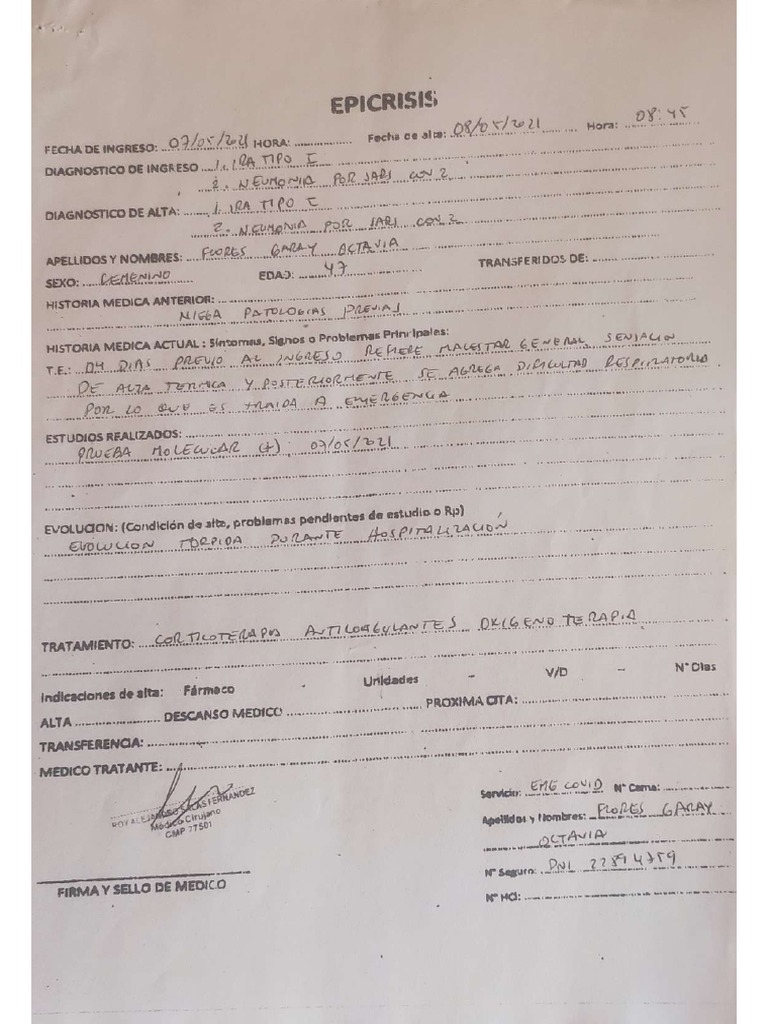 EPICRISIS
FECHA DE INGRESO: 07/05/2021 HORA: Fecha de alta: 08/05/2021 Hora: 08:45
DIAGNOSTICO DE INGRESO 1. IRA TIPO I
2. NEUMONIA POR SARS COV.2
DIAGNOSTICO DE ALTA: 1. IRA TIPO I
2. NEUMONIA POR SARS COV.2
APELLIDOS Y NOMBRES: FLORES GARAY OCTAVIA
SEXO: FEMENINO EDAD: 47 TRANSFERIDOS DE:
HISTORIA MEDICA ANTERIOR:
NIEGA PATOLOGIAS PREVIAS
HISTORIA MEDICA ACTUAL : Síntomas, Signos o Problemas Principales:
T.E.: 04 DIAS PREVIO AL INGRESO REFIERE MALESTAR GENERAL SENSACION
DE ALZA TERMICA Y POSTERIORMENTE SE AGREGA DIFICULTAD RESPIRATORIA
POR LO QUE ES TRAIDA A EMERGENCIA
ESTUDIOS REALIZADOS:
PRUEBA MOLECULAR (+) 07/05/2021
EVOLUCION: (Condición de alte, problemas pendientes de estudio o Rp)
EVOLUCION TORPIDA DURANTE HOSPITALIZACIÓN
TRATAMIENTO: CORTICOTERAPIA ANTICOAGULANTES OXIGENOTERAPIA
Indicaciones de alta: Fármaco Unidades - V/D - N° Dias
ALTA DESCANSO MEDICO PROXIMA CITA:
TRANSFERENCIA:
MEDICO TRATANTE:
ROY ALEJANDRO SALAS FERNANDEZ
Médico Cirujano
CMP 77501
FIRMA Y SELLO DE MEDICO
Servicio: EME COVID N° Cama:
Apellidos y Nombres: FLORES GARAY
OCTAVIA
N° Seguro: DNI 22894759
N° HCl: